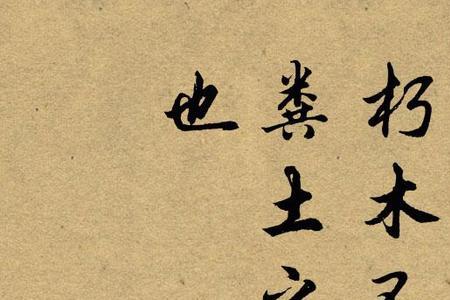 朽木
粪土
也